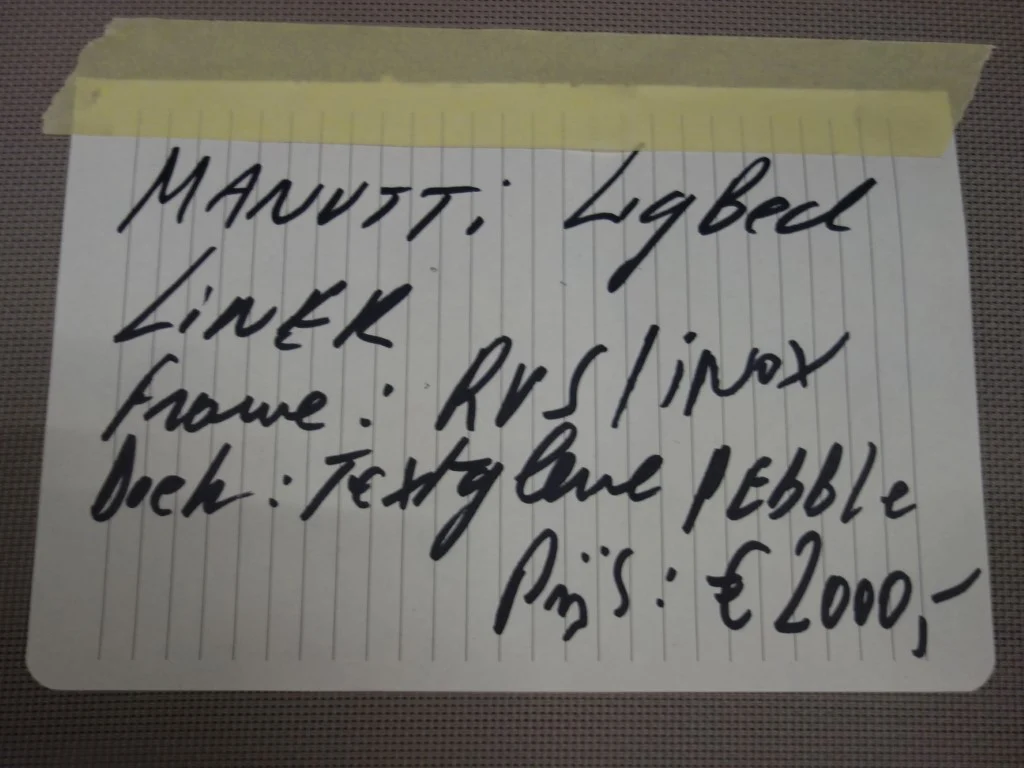 MANUTTi LigBed
LiNER
Frame: RVS/iNOX
Doek: Textylene PEbble
Prijs: € 2000,-